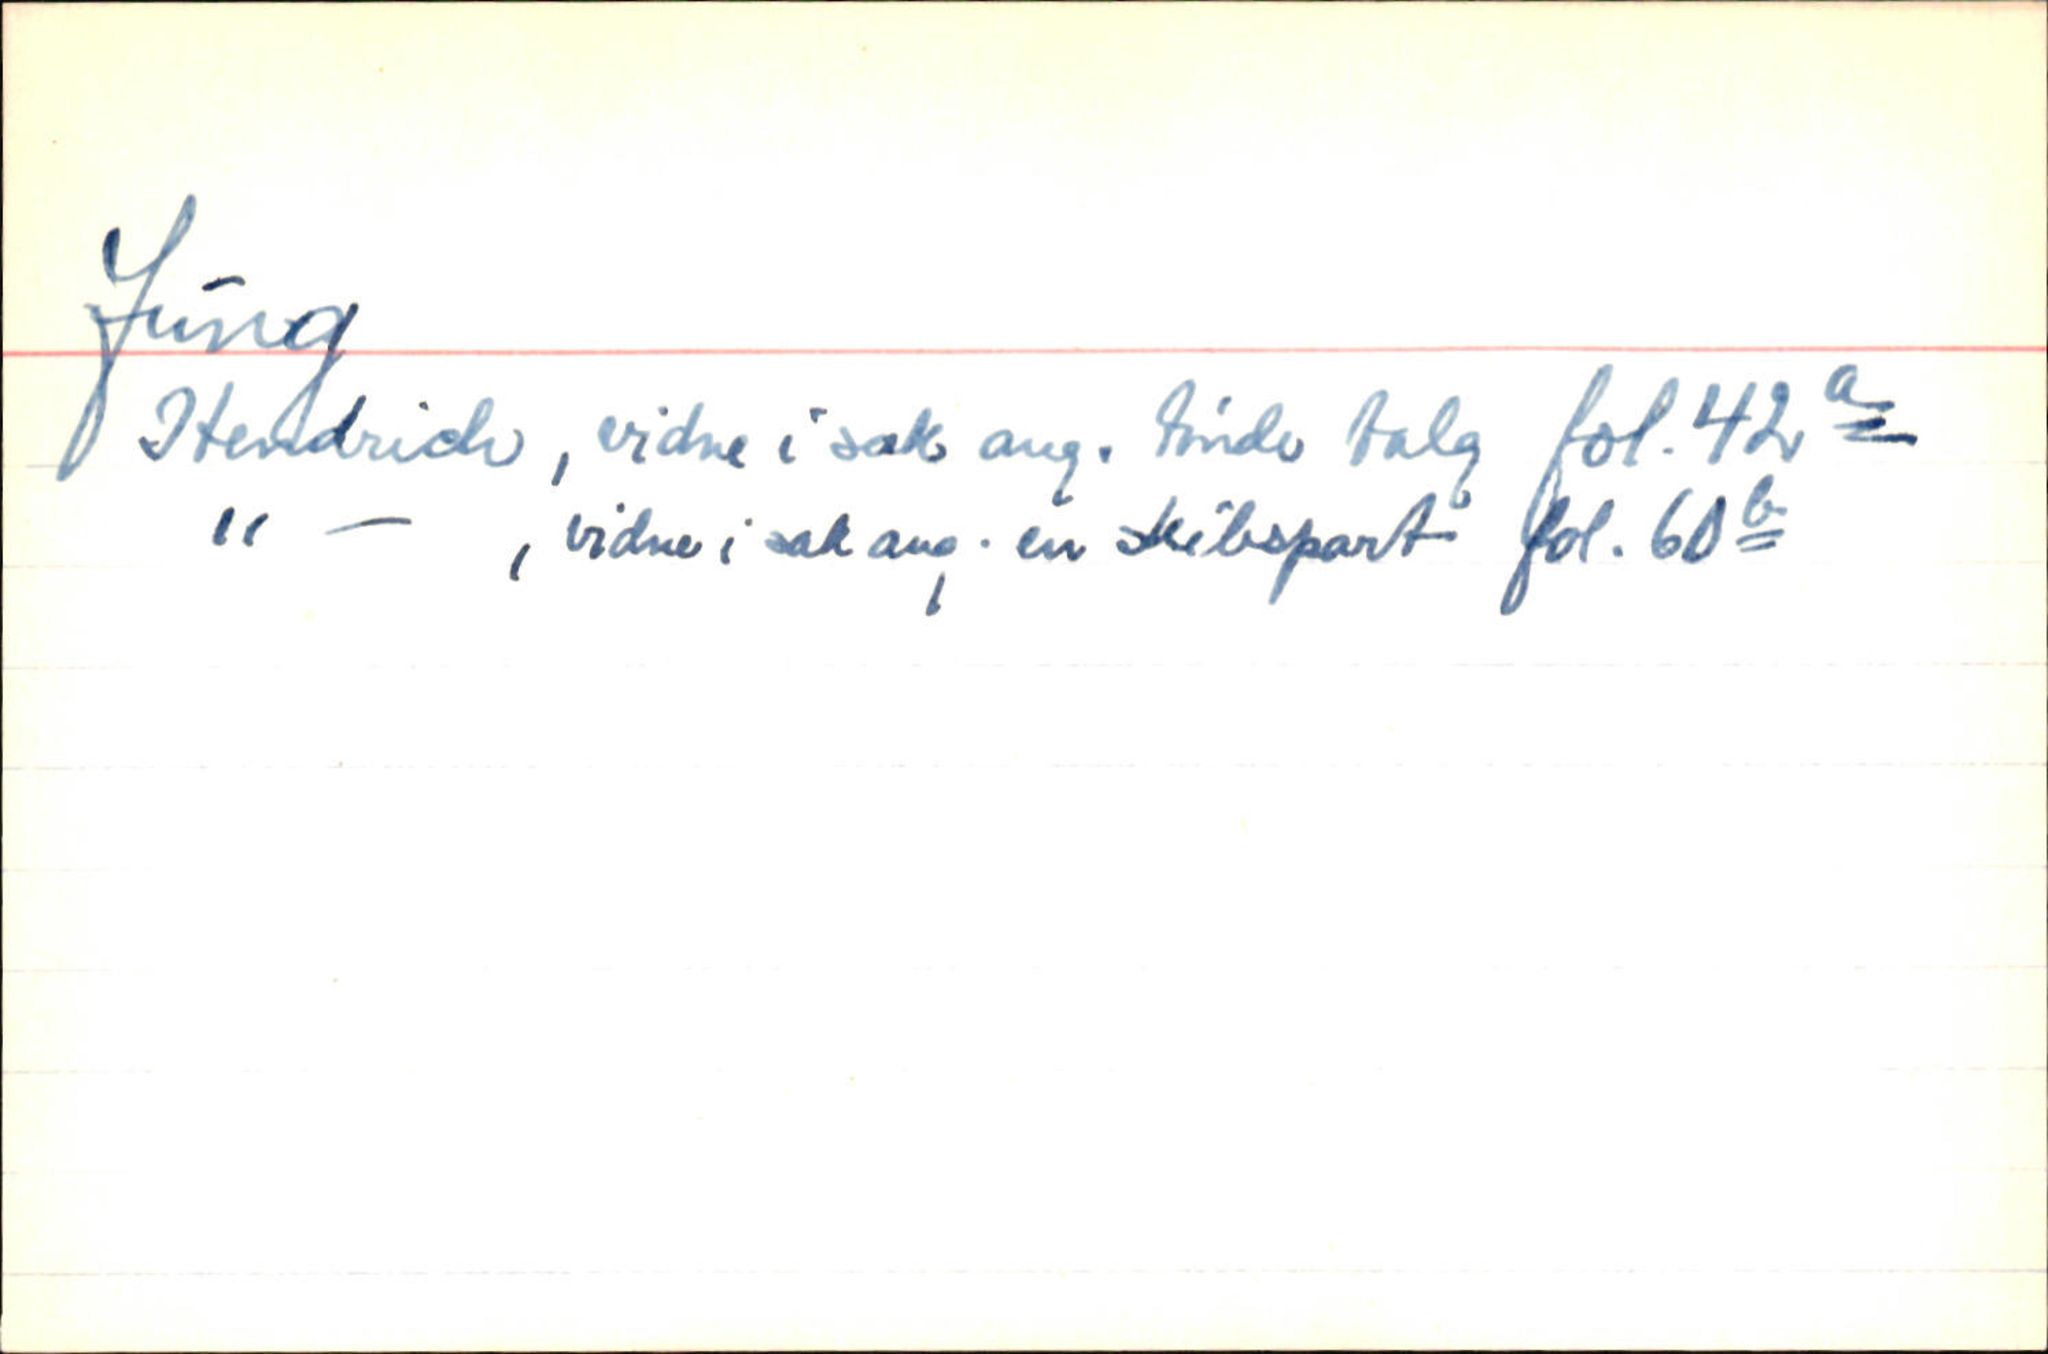 Jung
Hendrich, vidne i sak ang. tinde talg fol. 42 a
" — , vidne i sak ang. en skibspart fol. 60 b